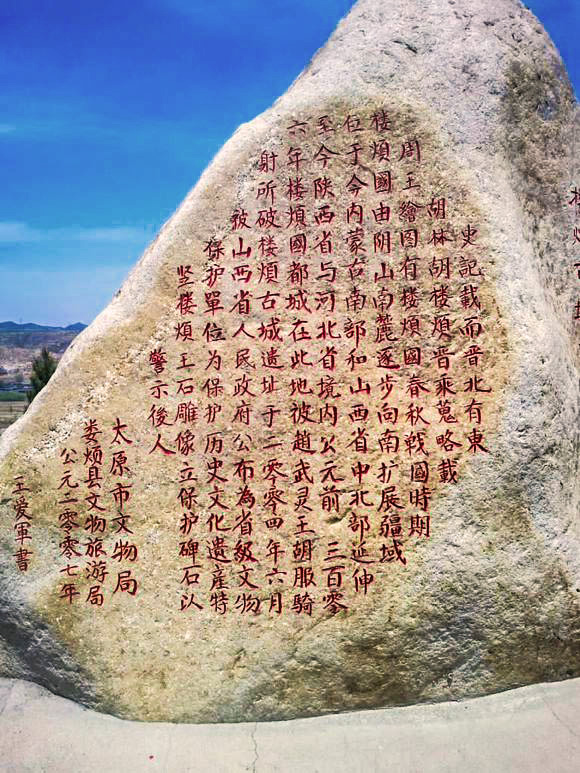 史記載而晋北有東
胡林胡楼煩晋乘蒐略載
周王繪图有楼煩國春秋戦國時期
楼煩國由阴山南麓逐步向南扩展疆域
位于今内蒙古南部和山西省中北部延伸
至今陕西省与河北省境内公元前 三百零
六年楼煩國都城在此地被趙武灵王胡服騎
射所破楼煩古城遗址于二零零四年六月
被山西省人民政府公布為省級文物
保护單位为保护历史文化遗産特
竖楼煩王石雕像立保护碑石以
警示後人
太原市文物局
娄烦县文物旅游局
公元二零零七年
王爱軍書